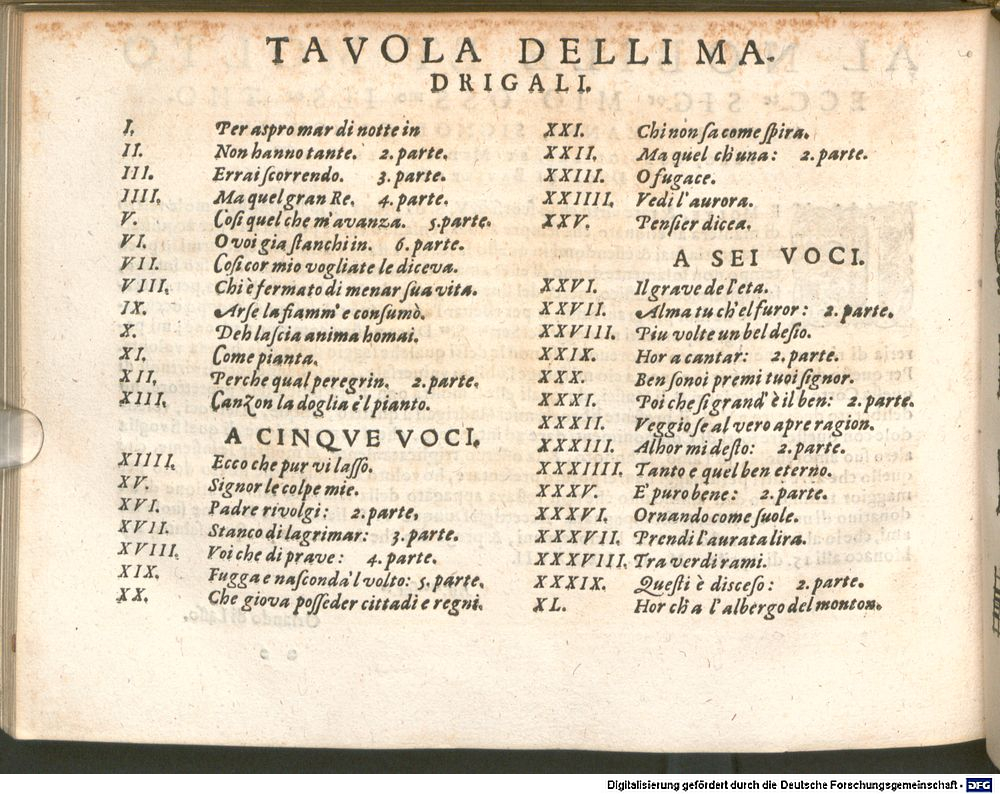 TAVOLA DELLI MA.
DRIGALI.
I. Per aspro mar di notte in
II. Non hanno tante. 2. parte.
III. Errai scorrendo. 3. parte.
IIII. Ma quel gran Re. 4. parte.
V. Cosi quel che m'avanza. 5. parte.
VI. O voi gia stanchi in. 6. parte.
VII. Cosi cor mio vogliate le diceva.
VIII. Chi è fermato di menar sua vita.
IX. Arse la fiamm' e consumò.
X. Deh lascia anima homai.
XI. Come pianta.
XII. Perche qual peregrin. 2. parte.
XIII. Canzon la doglia e'l pianto.
A CINQVE VOCI.
XIIII. Ecco che pur vi lasso.
XV. Signor le colpe mie.
XVI. Padre rivolgi: 2. parte.
XVII. Stanco di lagrimar: 3. parte.
XVIII. Voi che di prave: 4. parte.
XIX. Fugga e nasconda'l volto: 5. parte.
XX. Che giova posseder cittadi e regni.
XXI. Chi non sa come spira.
XXII. Ma quel ch'una: 2. parte.
XXIII. O fugace.
XXIIII. Vedi l'aurora.
XXV. Pensier dicea.
A SEI VOCI.
XXVI. Il grave de l'eta.
XXVII. Alma tu ch'el furor: 2. parte.
XXVIII. Piu volte un bel desio.
XXIX. Hor a cantar: 2. parte.
XXX. Ben sono i premi tuoi signor.
XXXI. Poi che si grand' è il ben: 2. parte.
XXXII. Veggio se al vero apre ragion.
XXXIII. Alhor mi desto: 2. parte.
XXXIIII. Tanto e quel ben eterno.
XXXV. E' puro bene: 2. parte.
XXXVI. Ornando come suole.
XXXVII. Prendi l'aurata lira.
XXXVIII. Tra verdi rami.
XXXIX. Questi è disceso: 2. parte.
XL. Hor ch'a l'albergo del monton.
Digitalisierung gefördert durch die Deutsche Forschungsgemeinschaft - DFG